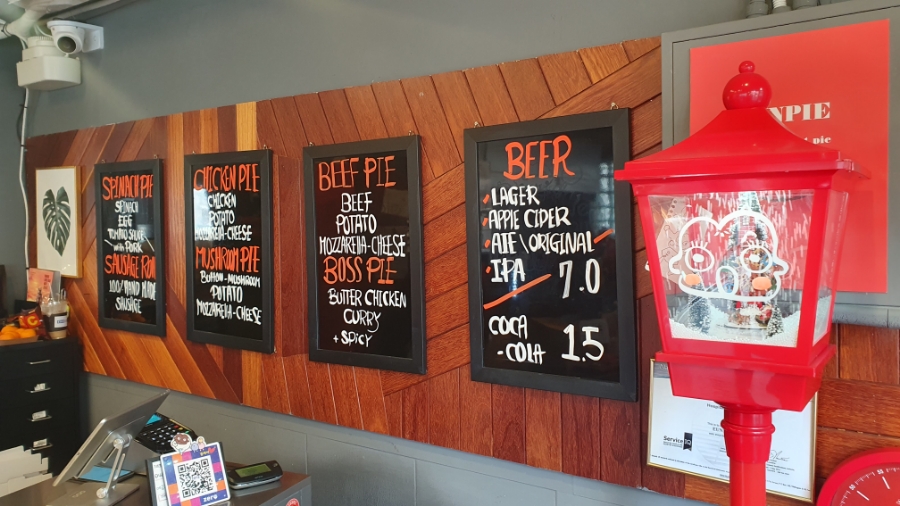 SPINACH PIE
SPINACH
EGG
TOMATO SAUCE
with PORK
SAUSAGE ROLL
100% HAND MADE
SAUSAGE
CHICKEN PIE
CHICKEN
POTATO
MOZZARELLA-CHEESE
MUSHROOM PIE
BUTTON-MUSHROOM
POTATO
MOZZARELLA-CHEESE
BEEF PIE
BEEF
POTATO
MOZZARELLA-CHEESE
BOSS PIE
BUTTER CHICKEN
CURRY
+ SPICY
BEER
LAGER
APPLE CIDER
ALE \ ORIGINAL
IPA 7.0
COCA
-COLA 1.5
NPIE
pie
Service IQ
zero